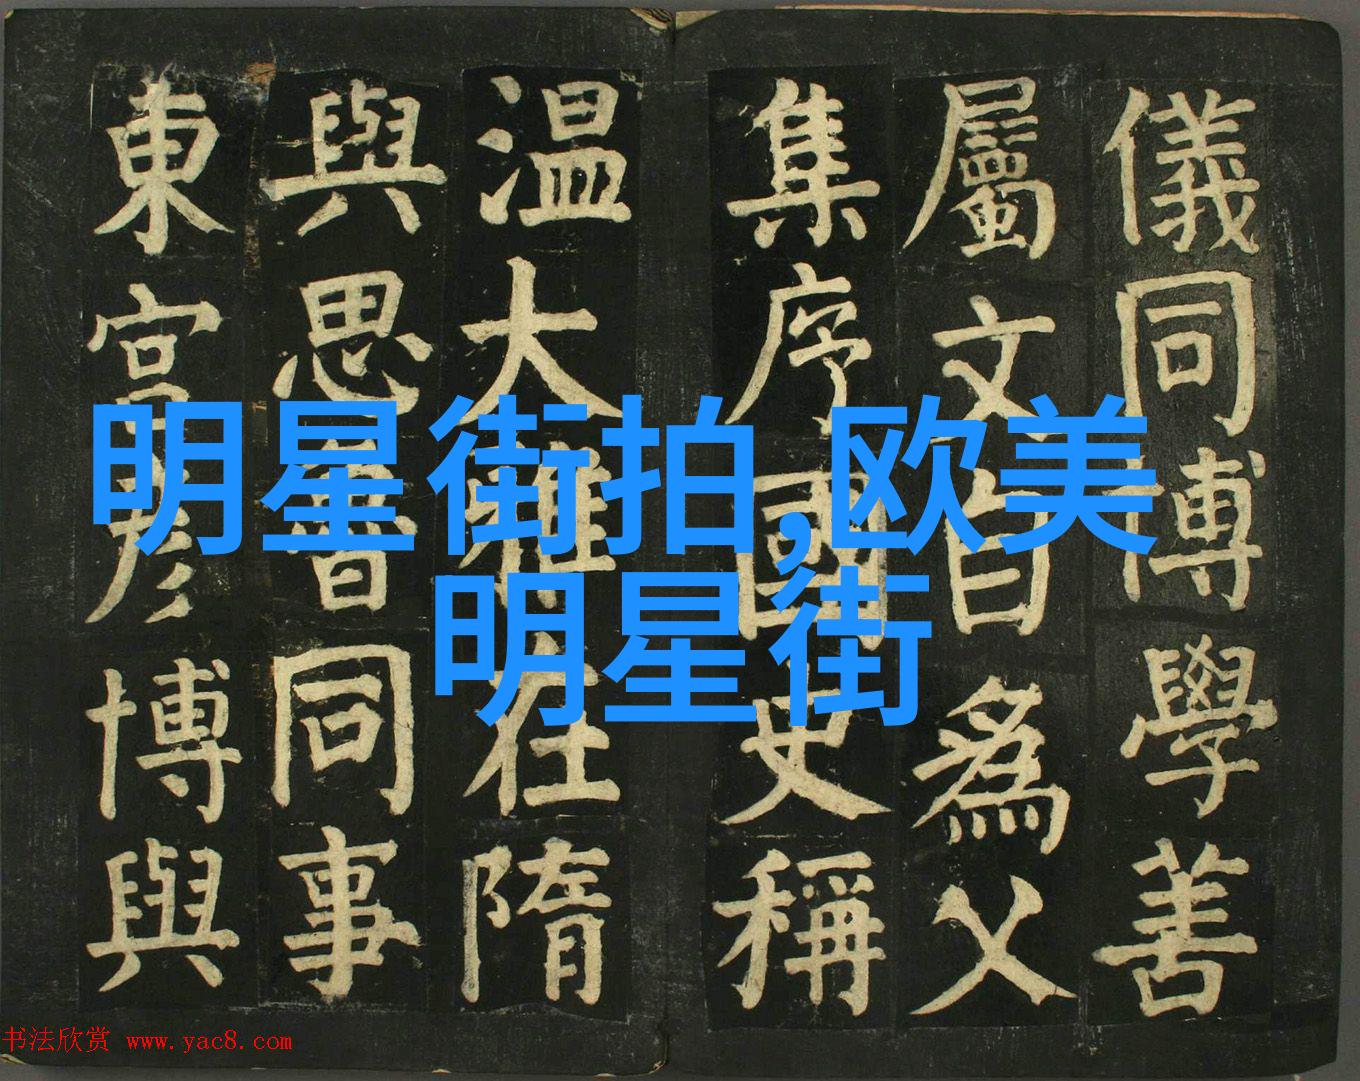 儀同博學善
屬文自為父
集序國史稱
温大雅在隋
與思魯同事
東宮彦博與
明星街拍,欧美
明星街
书法欣赏 www.yac8.com